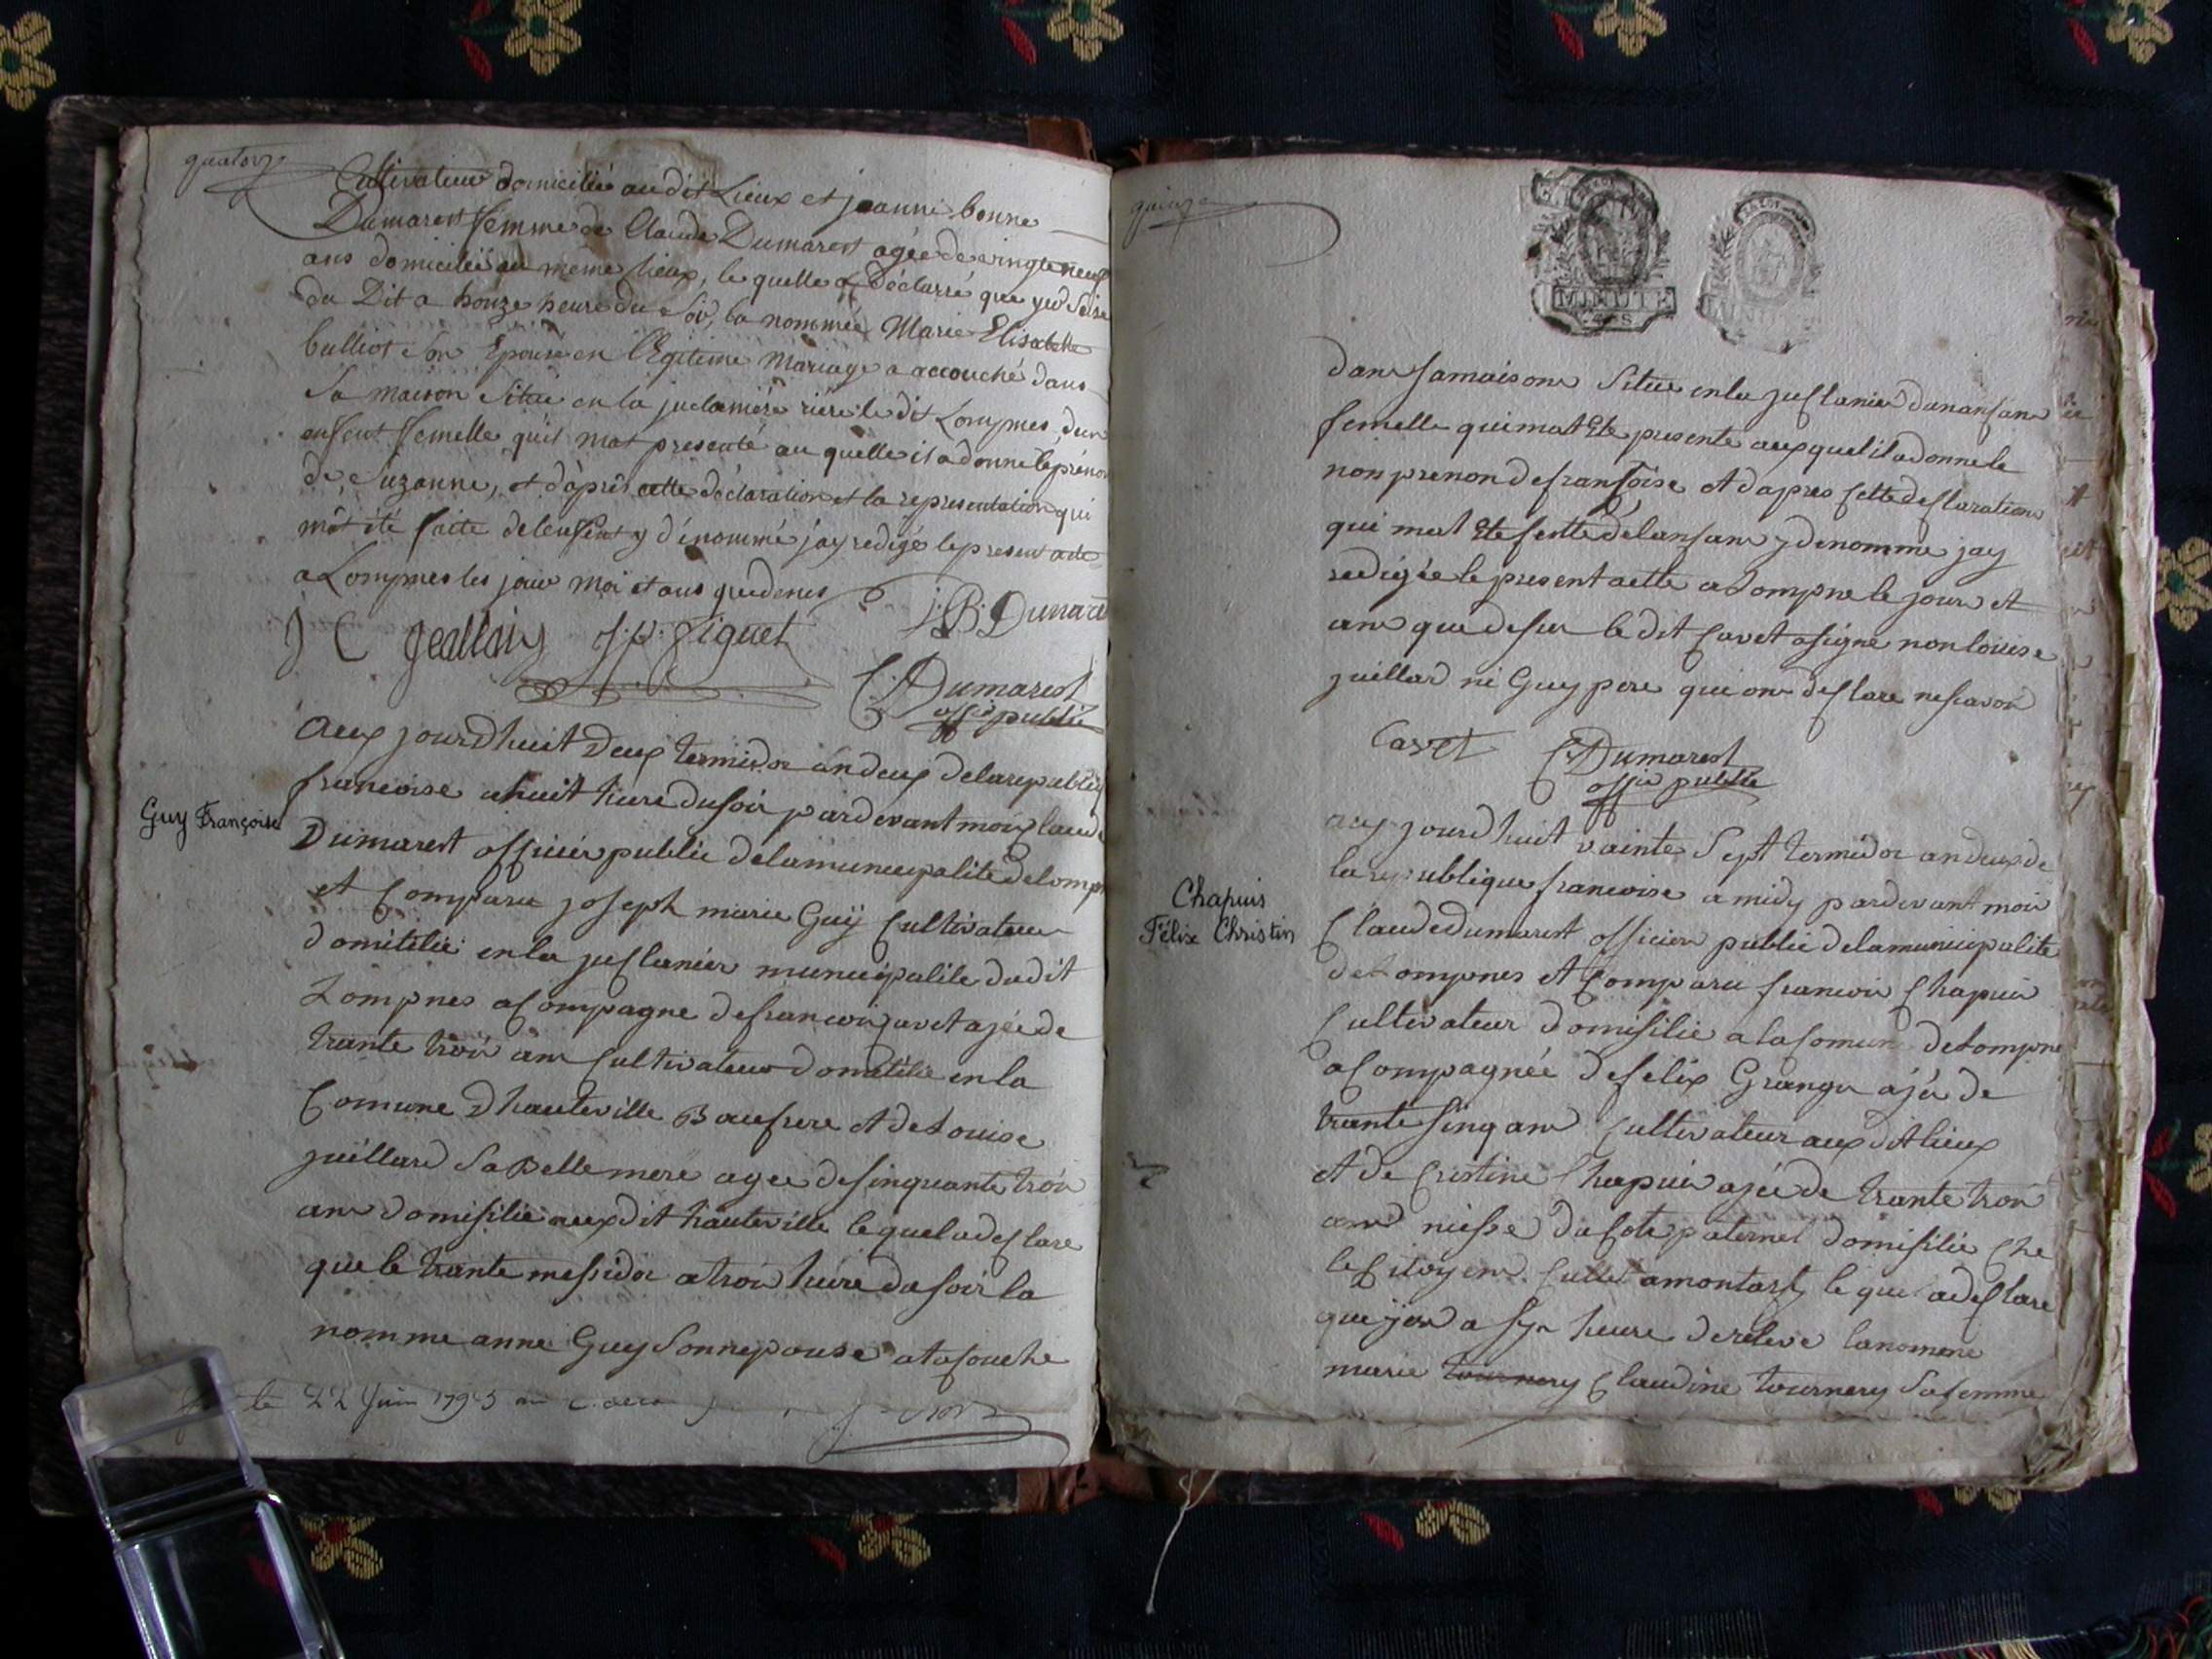 quatorze
Cultivateur domicilié audit Lieux et jeanne bonne
Dumarest femme de Claude Dumarest agée de vingt neuf
ans domiciliée au même lieux, le quelle a Déclarré que yer seise
du Dit a honze heure du Soir, la nommée Marie Elisabette
bulliot son Epouse en légitime Mariage a accouché dans
sa maison sitúe en la juclanière rière le dit Lompnes, d'un
enfent femelle qu'il mat presenté au quelle il a donné le prénom
de Suzanne, et d'àprés cette déclaration et la representation qui
m'ât été faite de lenfent y dénommé j'ay redigé le present acte
a Lompnes les jour moi et ans que denes
J C Jeallaiy J. p. Figuet J: B: Dumare
C. Dumarest
offi. public
Guy Françoise
aux jourdhuit Deux termidor an deux de la republiq
francoise a huit heure du soir pardevant moi claude
Dumarest officiér public de la municipalité de lompn
et Comparu joseph marie Guÿ Cultivateur
domitilié en la juclanier municipalite dudit
Lompnes acompagne de francoi cavet ajée de
trante troi ans Cultivateur domitilie en la
Comune dhauteville Baufrere et de Louise
juillard sa Belle mere agee de sinquante troi
ans domisilie aux dit hauteville lequel a desclare
que le trante messidor a troi heure du soir la
nomme anne Guy son nepouse at acouche
le 22 Juin 1793
quinze
MINUTE
dans sa maison situe en la juclanier dun anfan
femelle qui mat Ete presente aux quel il a donne le
non prenon de fransoise et dapres sette desclaration
qui mat Ete fette de lanfan y denomme jay
redigée le present actte a Lompne le jour et
an que desu le dit Cavet a signe non louise
juillard ni Guy pere qui on desclare ne savoir
Cavet C. Dumarest
offi. public
Chapuis
Félix Christin
aux jourdhuit vainte Sept termidor an deux de
la republique francoise a midy pardevant moi
Claude dumarest officier public de la municipalite
de Lompnes et Comparu francoi Chapui
Cultivateur domisilie a la Comune de Lompne
aCompagnée de felix Granger ajée de
trante sinq an Cultivateur aux dit lieux
et de Cristine Chapui ajée de trante troi
ans niesse du Cote paternel domisilie Che
le Citoyen Cullet a montarsy le quel a desclare
que yer a sis heure de releve la nomme
marie tournery Claudine tournery sa femme